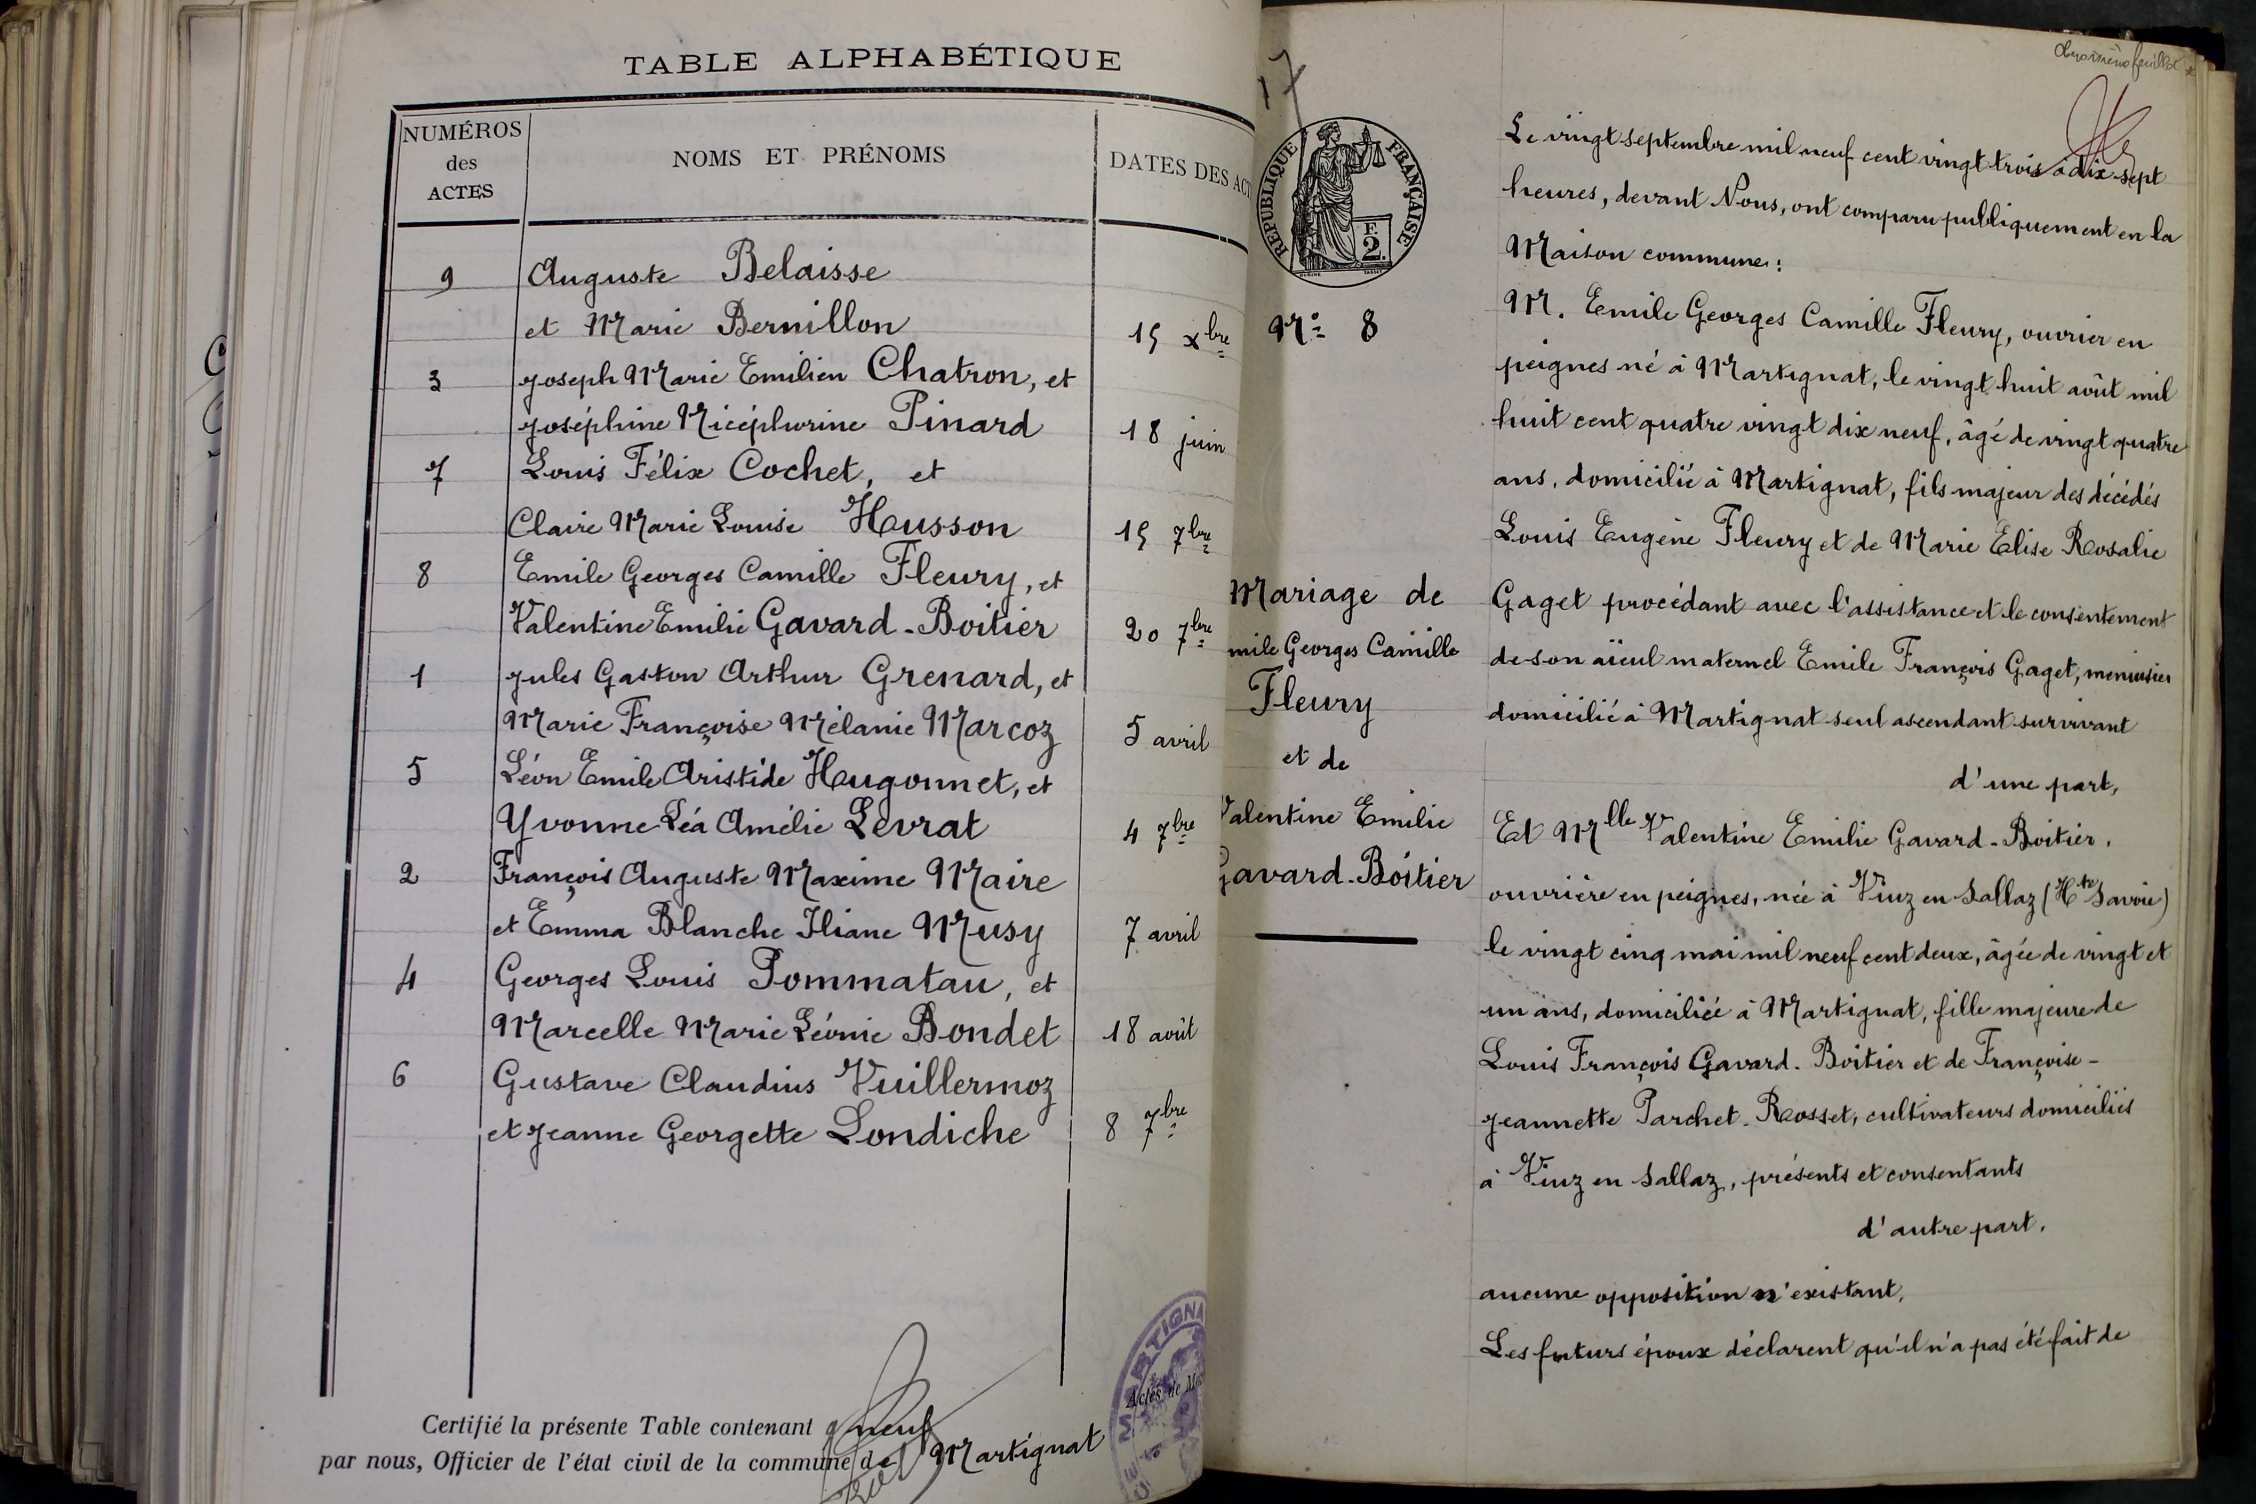 TABLE ALPHABÉTIQUE
NUMÉROS
des
ACTES
NOMS ET PRÉNOMS
DATES DES ACT
9 Auguste Belaisse
et Marie Bernillon 15 xbre
3 Joseph Marie Emilien Chatron, et
Joséphine Nicéphorine Pinard 18 juin
7 Louis Félix Cochet, et
Claire Marie Louise Husson 15 7bre
8 Emile Georges Camille Fleury, et
Valentine Emilie Gavard-Boitier 20 7bre
1 Jules Gaston Arthur Grenard, et
Marie Françoise Mélanie Marcoz 5 avril
5 Léon Emile Aristide Hugonnet, et
Yvonne Léa Amélie Levrat 4 7bre
2 François Auguste Maxime Maire
et Emma Blanche Iliane Musy 7 avril
4 Georges Louis Pommatau, et
Marcelle Marie Léonie Bondet 18 août
6 Gustave Claudius Vuillermoz
et Jeanne Georgette Londiche 8 7bre
Certifié la présente Table contenant neuf
Actes de Ma
par nous, Officier de l'état civil de la commune de Martignat
MARTIGNA
17
RÉPUBLIQUE FRANÇAISE
F.
2.
No 8
Mariage de
mile Georges Camille
Fleury
et de
Valentine Emilie
Gavard-Boitier
feuillet
Le vingt septembre mil neuf cent vingt trois à dix sept
heures, devant Nous, ont comparu publiquement en la
Maison commune:
M. Emile Georges Camille Fleury, ouvrier en
peignes né à Martignat, le vingt huit août mil
huit cent quatre vingt dix neuf, âgé de vingt quatre
ans, domicilié à Martignat, fils majeur des décédés
Louis Eugène Fleury et de Marie Elise Rosalie
Gaget procédant avec l'assistance et le consentement
de son aïeul maternel Emile François Gaget, menuisier
domicilié à Martignat seul ascendant survivant
d'une part,
Et Mlle Valentine Emilie Gavard-Boitier,
ouvrière en peignes, née à Viuz en Sallaz (Hte Savoie)
le vingt cinq mai mil neuf cent deux, âgée de vingt et
un ans, domiciliée à Martignat, fille majeure de
Louis François Gavard-Boitier et de Françoise-
Jeannette Parchet-Rosset, cultivateurs domiciliés
à Viuz en Sallaz, présents et consentants
d'autre part.
aucune opposition n'existant,
Les futurs époux déclarent qu'il n'a pas été fait de